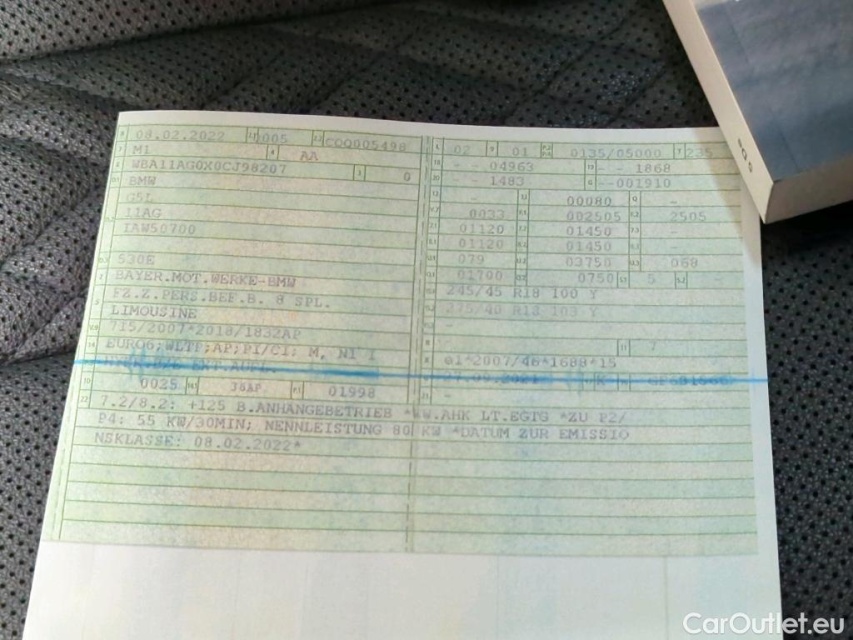 08.02.2022 0005 COQ005498
M1 AA
WBA11AG0X0CJ98207 0
BMW
G5L
11AG
IAW50700
530E
BAYER.MOT.WERKE-BMW
FZ.Z.PERS.BEF.B. 8 SPL.
LIMOUSINE
715/2007*2018/1832AP
EURO6;WLTP;AP;PI/CI; M, N1 I
0025 36AP 01998
02 01 0135/05000 235
- - 04963 - - 1868
- - 1483 - -001910
- 00080 -
0033 002505 2505
01120 01450 -
01120 01450 -
079 03750 068
01700 0750 5
245/45 R18 100 Y
275/40 R18 103 Y
-
- 7
e1*2007/46*1688*15
27.09.2021 K
-
7.2/8.2: +125 B.ANHANGEBETRIEB *WW.AHK LT.EGTG *ZU P2/
P4: 55 KW/30MIN; NENNLEISTUNG 80 KW *DATUM ZUR EMISSIO
NSKLASSE: 08.02.2022*
CarOutlet.eu